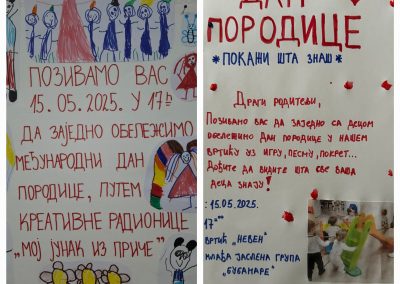 ПОЗИВАМО ВАС
15.05.2025. У 17h
ДА ЗАЈЕДНО ОБЕЛЕЖИМО
МЕЂУНАРОДНИ ДАН
ПОРОДИЦЕ, ПУТЕМ
КРЕАТИВНЕ РАДИОНИЦЕ
„МОЈ ЈУНАК ИЗ ПРИЧЕ"
ДАН
ПОРОДИЦЕ
*ПОКАЖИ ШТА ЗНАШ*
Драги родитељи,
Позивамо вас да заједно са децом
обележимо Дан породице у нашем
вртићу уз игру, песму, покрет...
Дођите да видите шта све ваша
деца знају!
: 15.05.2025.
17⁰⁰
ВРТИЋ „НЕВЕН"
МЛАЂА ЈАСЛЕНА ГРУПА
„БУБАМАРЕ"